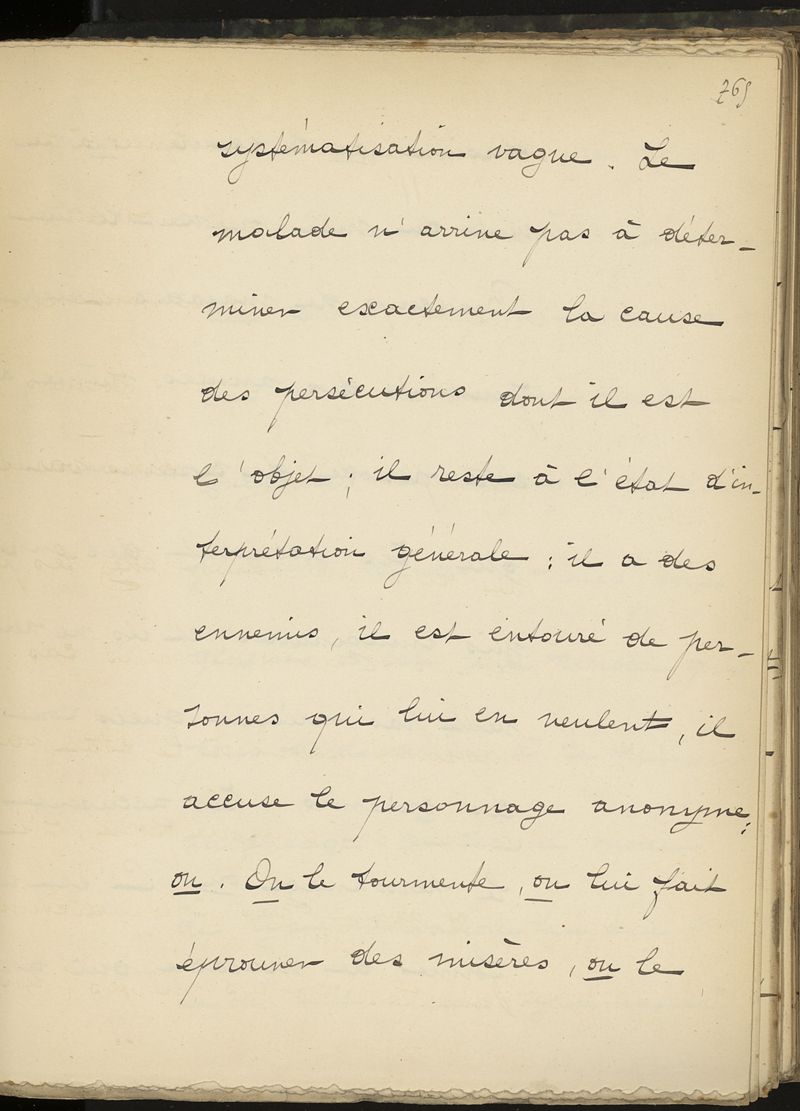 765
systématisation vague. Le
malade n'arrive pas à déter-
miner exactement la cause
des persécutions dont il est
l'objet ; il reste à l'état d'in-
terprétation générale ; il a des
ennemis, il est entouré de per-
sonnes qui lui en veulent, il
accuse le personnage anonyme :
on. On le tourmente, on lui fait
éprouver des misères, on le